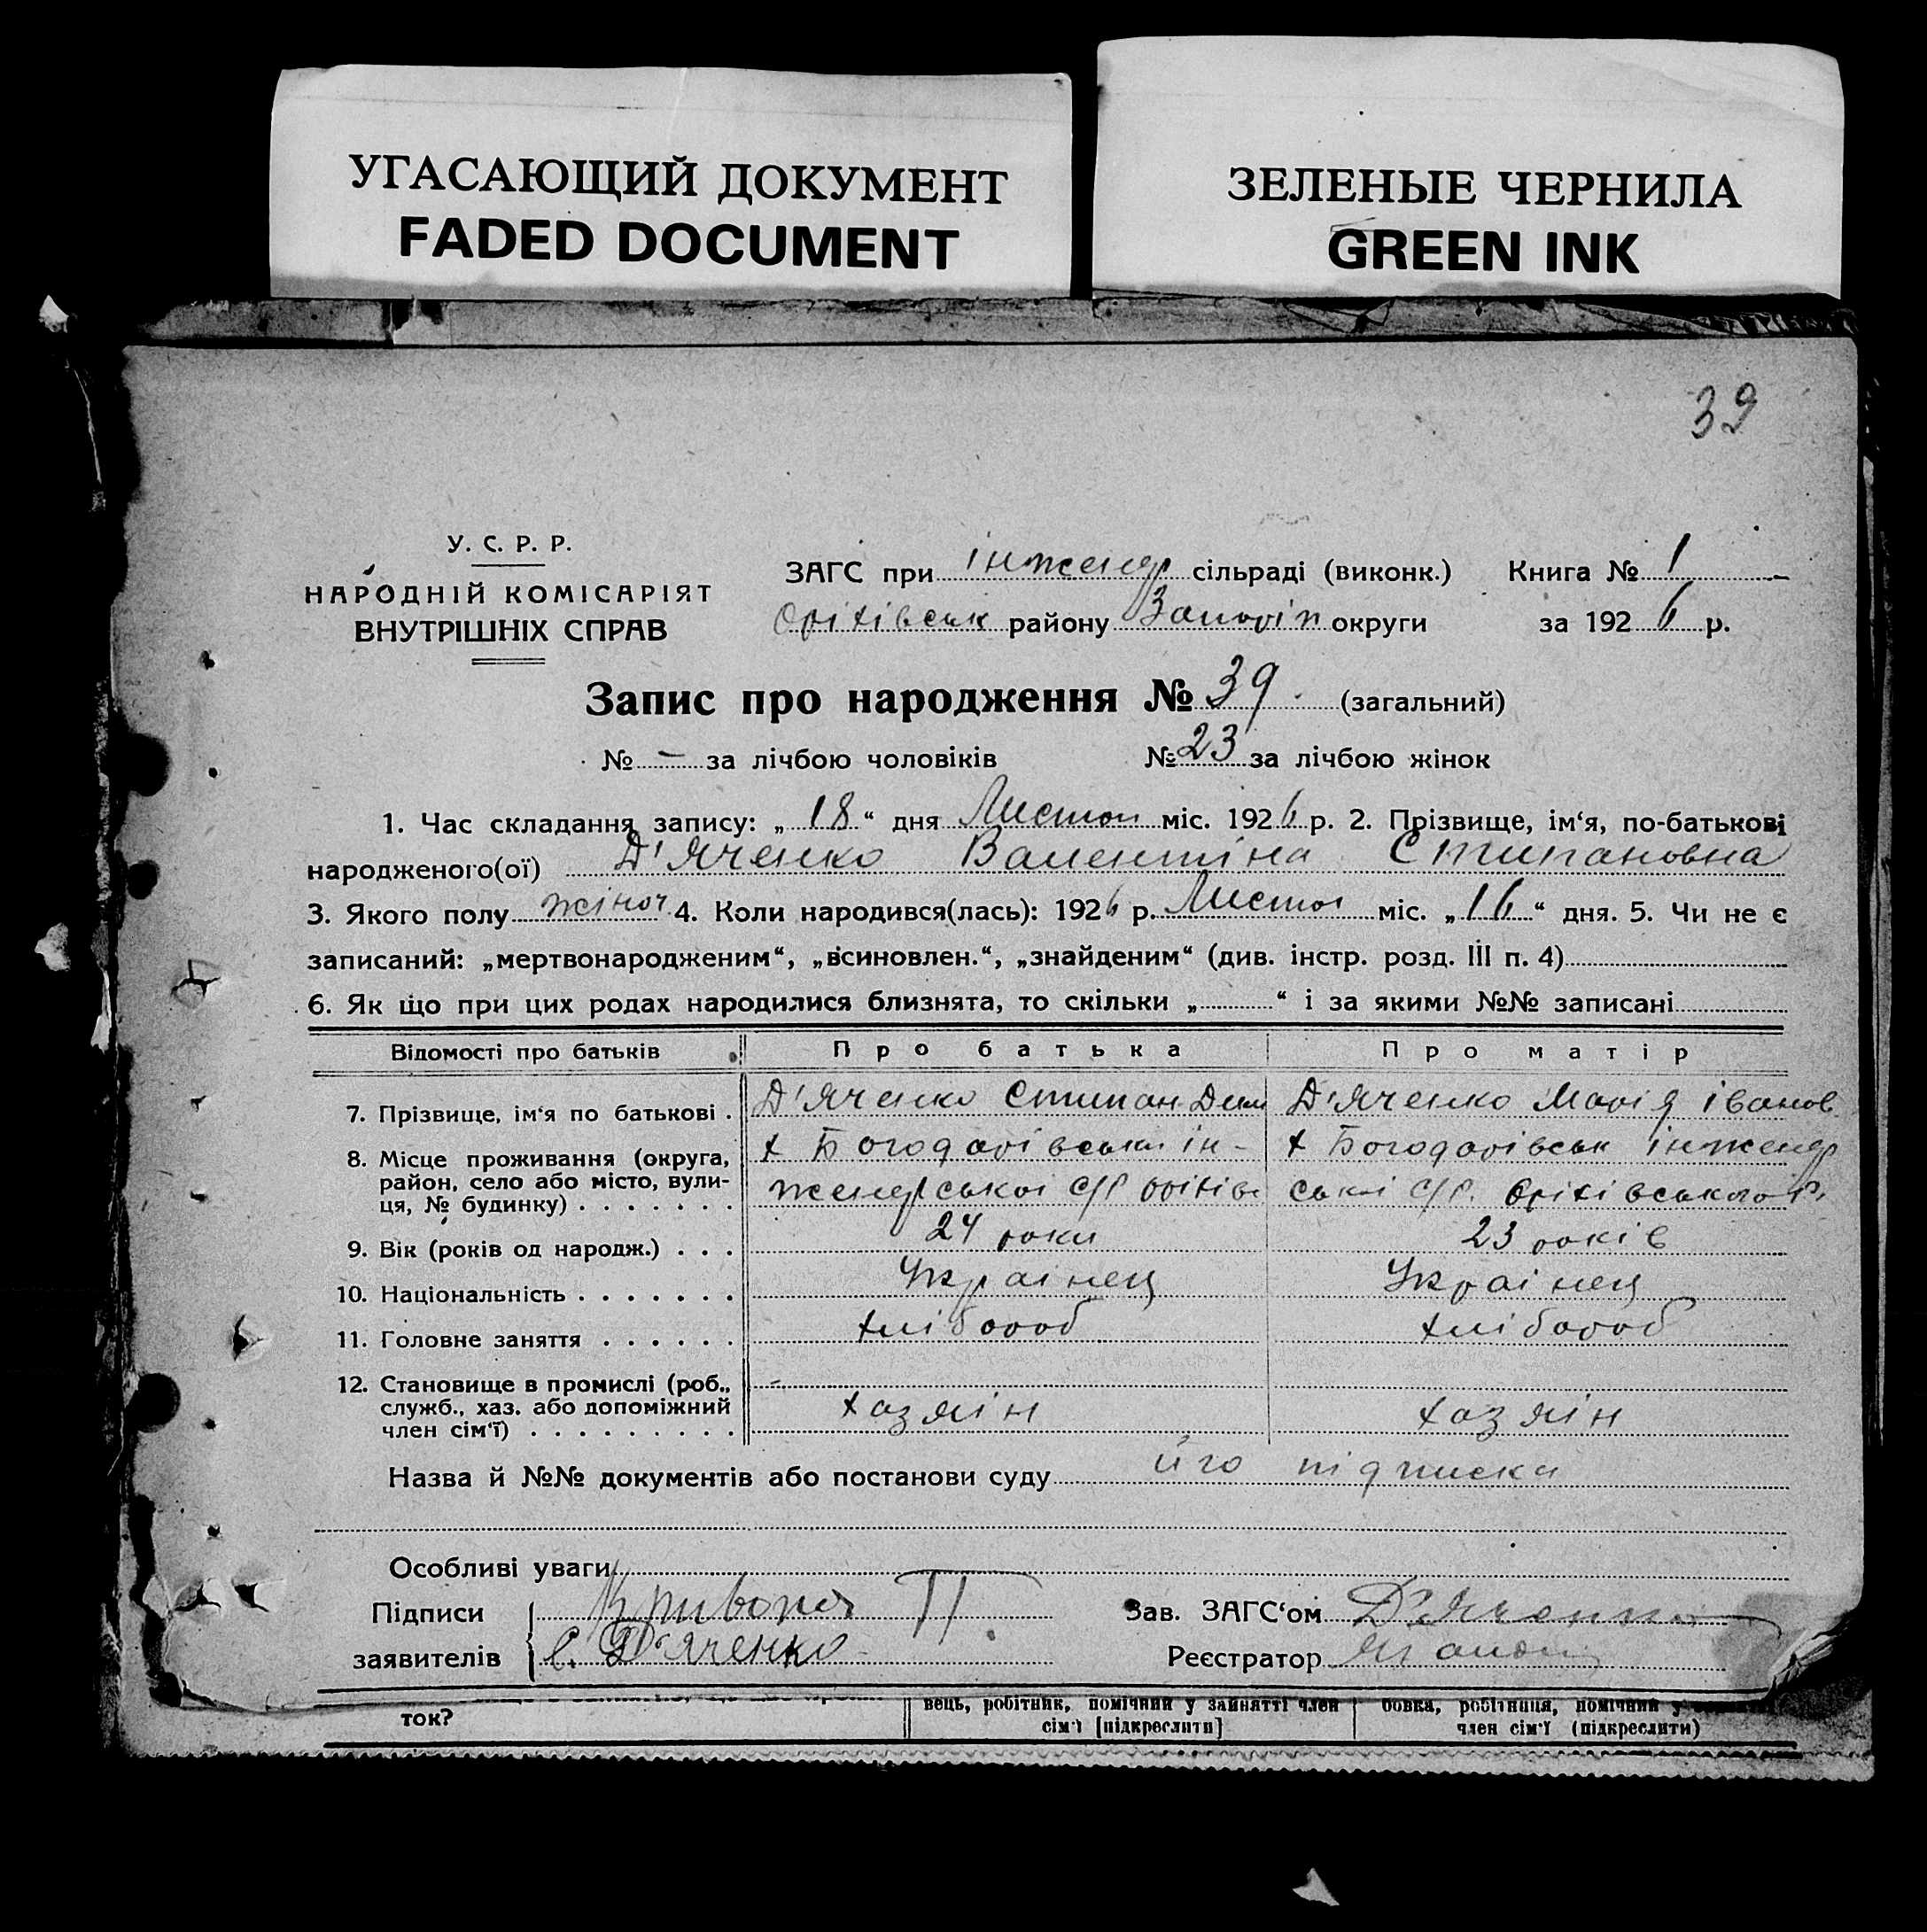 УГАСАЮЩИЙ ДОКУМЕНТ
FADED DOCUMENT
ЗЕЛЕНЫЕ ЧЕРНИЛА
GREEN INK
39
У. С. Р. Р.
НАРОДНІЙ КОМІСАРІЯТ
ВНУТРІШНІХ СПРАВ
ЗАГС при інженер сільраді (виконк.) Книга № 1
Оріхівськ району Запоріп округи за 1926 р.
Запис про народження № 39. (загальний)
№ – за лічбою чоловіків № 23 за лічбою жінок
1. Час складання запису: „18“ дня Листоп міс. 1926 р. 2. Прізвище, ім‘я, по-батькові
народженого(ої) Д'Яченко Валентіна Стипановна
3. Якого полу жіноч 4. Коли народився(лась): 1926 р. Листоп міс. „16“ дня. 5. Чи не є
записаний: „мертвонародженим“, „всиновлен.“, „знайденим“ (див. інстр. розд. III п. 4)
6. Як що при цих родах народилися близнята, то скільки „ “ і за якими №№ записані
Відомості про батьків Про батька Про матір
7. Прізвище, ім‘я по батькові . Д'Яченко Стипан Дем Д'Яченко Марія Іванов
8. Місце проживання (округа, х Богодарівськи ін- х Богодарівськ інженер
район, село або місто, вули-
ця, № будинку) . . . . . . . женерської с/р оріхівс ської с/р. Оріхівського р.
9. Вік (років од народж.) . . . 24 роки 23 років
10. Національність . . . . . . . Українец Українец
11. Головне заняття . . . . . . хлібороб хлібороб
12. Становище в промислі (роб., -
служб., хаз. або допоміжний хазяін хазяін
член сім‘ї) . . . . . . . . .
Назва й №№ документів або постанови суду його підписка
Особливі уваги
Підписи П. Зав. ЗАГС‘ом Д'Яченко
заявителів С. Д'яченко Реєстратор
ток? вець, робітник, помічний у зайнятті член бовка, робітниця, помічний у
сім'ї [підкреслити] член сім'ї (підкреслити)